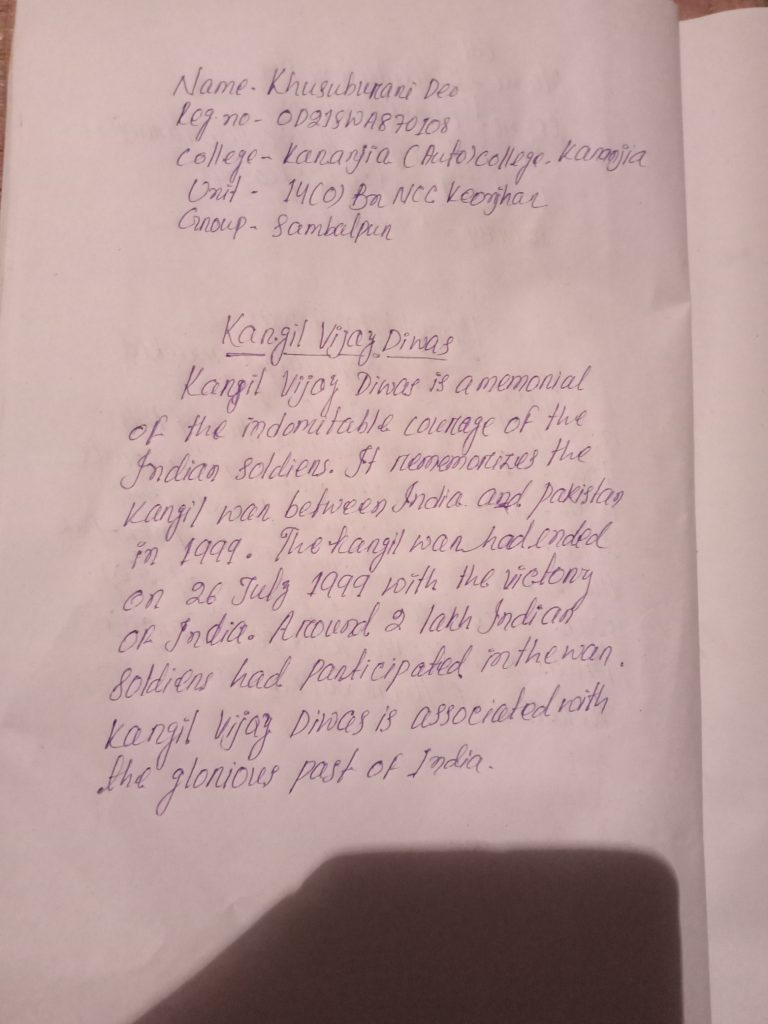 Name- Khusuburani Deo
Reg. no- OD21SWA870108
College- Karanjia (Auto) college, Karanjia
Unit - 14(O) Bn NCC Keonjhar
Group- Sambalpur
Kargil Vijay Diwas
Kargil Vijay Diwas is a memorial
of the indomitable courage of the
Indian soldiers. It rememorizes the
Kargil war between India and pakistan
in 1999. The kargil war had ended
on 26 July 1999 with the victory
of India. Around 2 lakh Indian
soldiers had participated in the war.
Kargil Vijay Diwas is associated with
the glorious past of India.